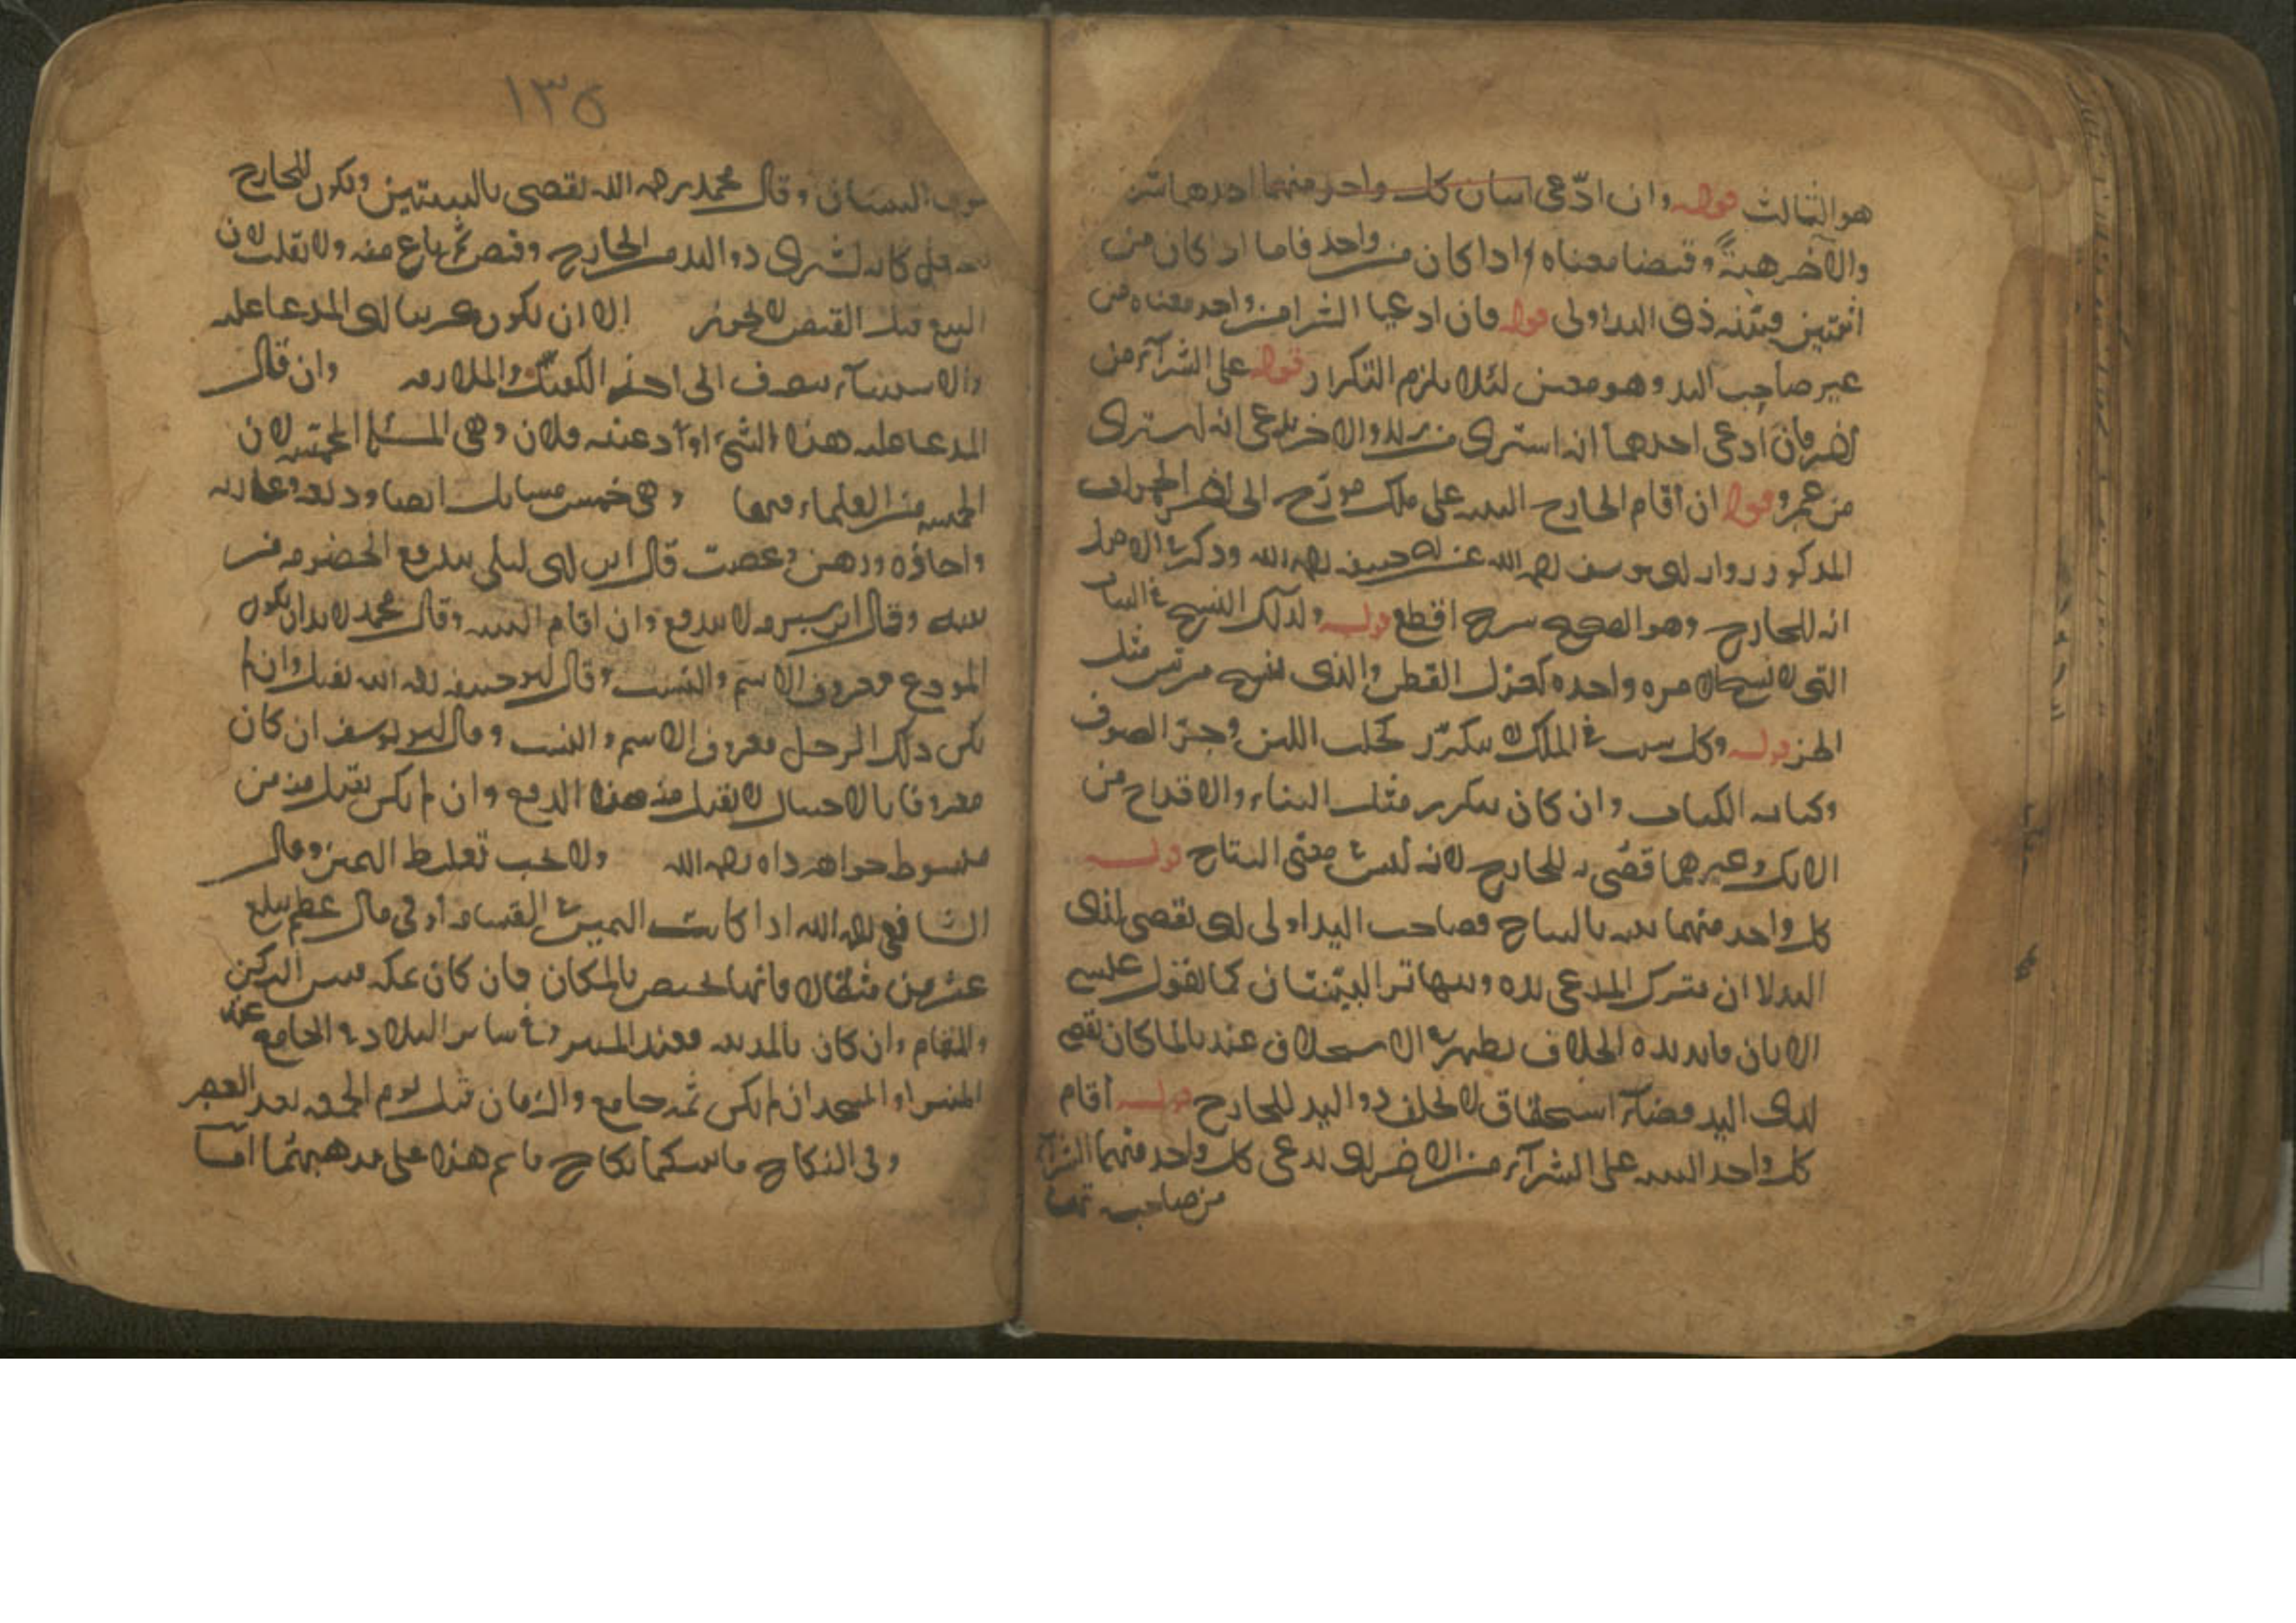 هو الثالث قوله وان ادّعى اسان كل واحد منهما احدهما شرى
والآخر هبةً وقبضا معناه اذا كان من واحد فاما اذا كان من
اثنين فبينه ذى اليد اولى قوله فان ادعيا الشرا من واحد معناه من
غير صاحب اليد وهو معين لئلا يلزم التكرار قوله على الشرآء من
آخر فان ادعى احدهما انه اشترى من زيد والاخر يدعى انه اشترى
من عمرو قوله ان اقام الخارج البينه على ملك مورّخ الى آخر الجواب
المذكور رواية ابى يوسف رحمه الله عن ابى حنيفه رحمه الله وذكر فى الاصل
انه للخارج وهو الصحيح اقطع قوله ولذلك النسج فى الثياب
التى لا تنسج الا مره واحده كغزل القطن والذى ينسج مرتين مثل
الخز قوله وكل سبب فى الملك لا يتكرّر كحلب اللبن وجزّ الصوف
وان كان يتكرر مثل البناء والاقداح من
وغيرهما قضى به للخارج لانه ليس فى معنى النتاج قوله
كل واحد منهما بينه بالنتاج فصاحب اليد اولى اى يقضى لذى
اليد لا ان يترك المدعى بيده ويتهاتر البينتان كما يقول عيسى
الابان فايده هذه الخلاف يظهر فى الاستحلاف عندنا لما كان يقضى
لذى اليد قضآء استحقاق لا يحلف ذو اليد للخارج قوله اقام
كل واحد البينه على الشرآء من الاخر اى يدعى كل واحد منهما الشرآء
من صاحبه
١٣٥
البينتان وقال محمد رحمه الله يقضى بالبينتين ويكون للخارج
كانه اشترى ذو اليد من الخارج وقبض ثم باع منه ولا يقلب لان
البيع قبل القبض لا يجوز الا ان يكون اى المدعا عليه
والاستثنآء ينصرف الى وان قال
المدعا عليه هذا الشىء اودعنيه فلان وهى المسئلة المخمسه لان
الخمسه من العلماء فيها وهى خمس مسايل ايضا وديعه وعاريه
واجاره ورهن وغصب قال ابن ابى ليلى يندفع الخصومه من
وقال ابن شبرمه لا يندفع وان اقام البينه وقال محمد لا بد ان يكون
المودع معروف الاسم والنسب وقال ابو حنيفه رحمه الله يقبل وان لم
يكن ذلك الرجل معروف الاسم والنسب وقال ابو يوسف ان كان
معروفا بالاحتيال لا يقبل منه هذا الدفع وان لم يكن يقبل منه من
مبسوط خواهر زاده رحمه الله ولا يجب تغليظ اليمين وقال
الشافعى رحمه الله اذا كانت اليمين فى القسامه او فى مال عظيم يبلغ
عشرين مثقالا فانها يختص بالمكان فان كان بمكه فبين الركن
والمقام وان كان بالمدينه فعند المنبر وفى ساير البلاد فى الجامع عند
المنبر او المسجد ان لم يكن ثمه جامع والزمان قبل يوم الجمعه بعد العصر
وفى النكاح ما بينكما نكاح قايم هذا على مذهبهما امّا